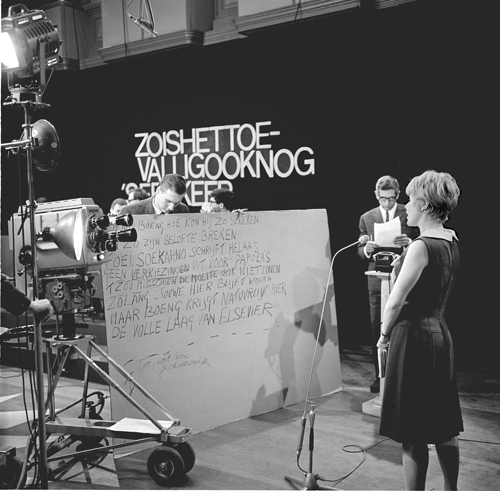 ZOISHETTOE-
VALLIGOOKNOG
KEER
BOENG HOE KON HIJ ZO SPREKEN
ZO ZIJN BELOFTE BREKEN
SOEKARNO SCHRIJFT HELAAS
GEEN VERKIEZINGEN UIT VOOR PAPOEAS
T ZOU MISSCHIEN DE MOEITE OOK NIET LONEN
ZOLANG SOUWE HIER BLIJFT WONEN
MAAR BOENG KRIJGT NATUURLIJK HIER
DE VOLLE LAAG VAN ELSEVIER